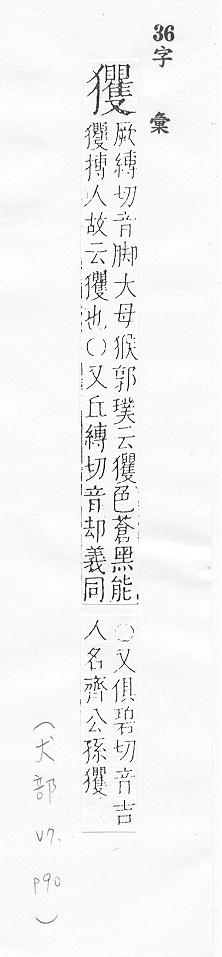 36
字彙
玃
厥縛切音脚大母猴郭璞云玃色蒼黑能
玃搏人故云玃也○又丘縛切音却義同
○又俱碧切音吉
人名齊公孫玃
(犬部 V7. P90)